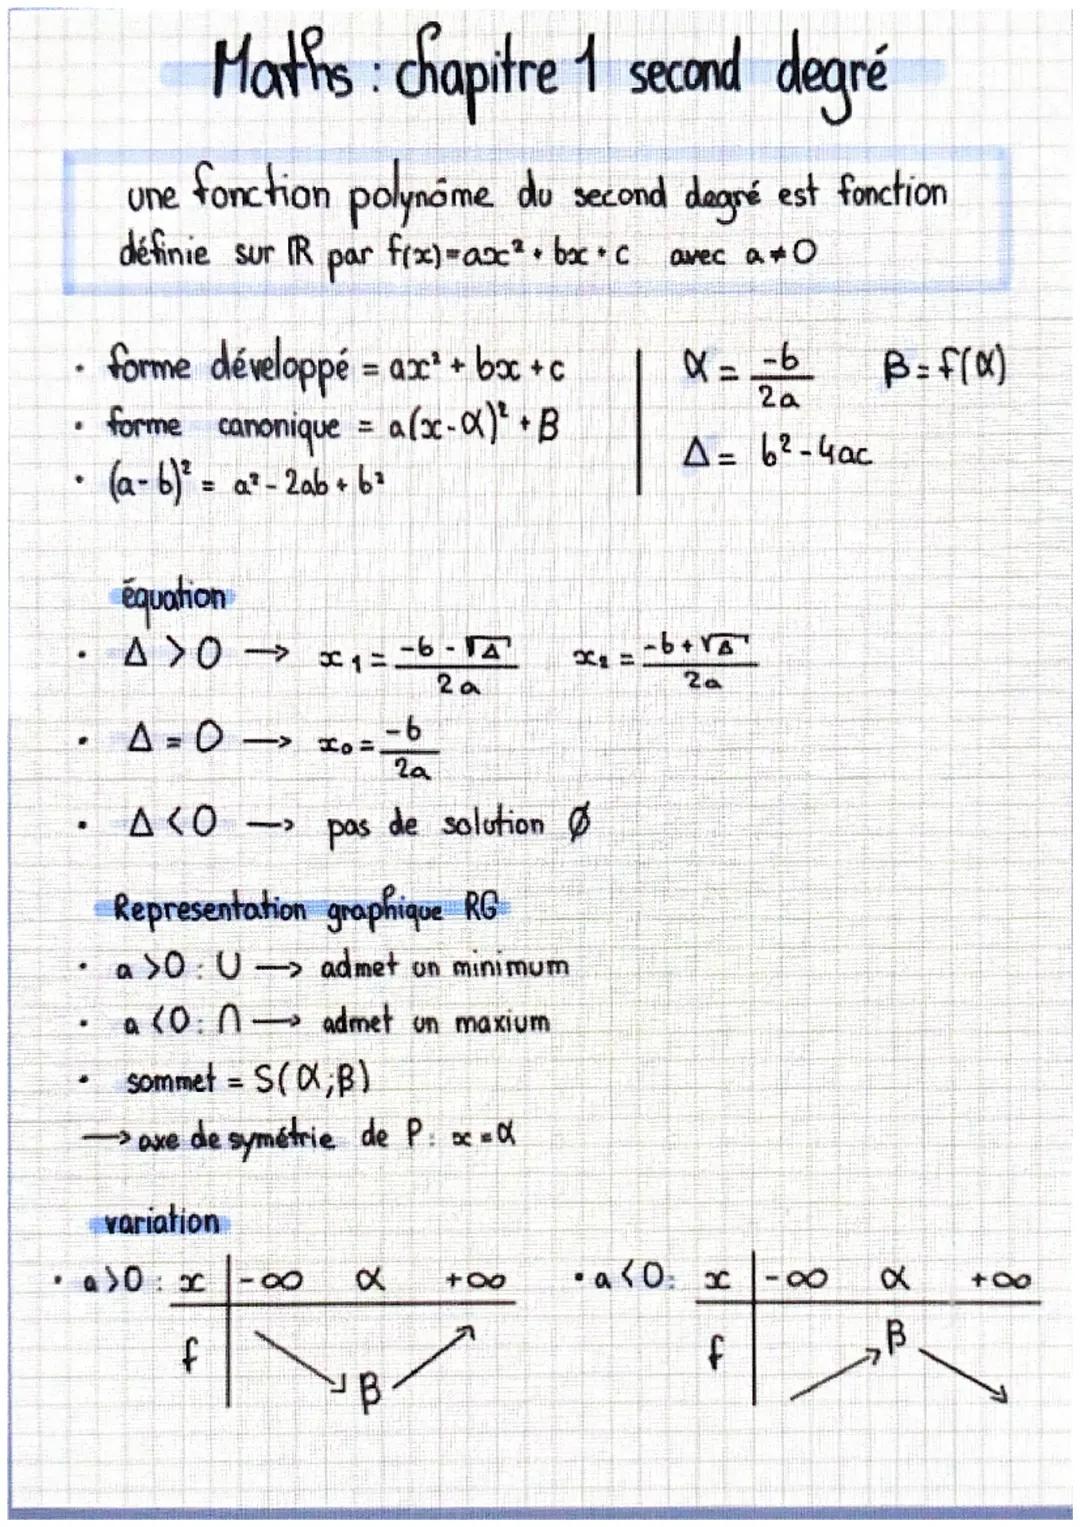 Maths : chapitre 1 second degré
une fonction polynôme du second degré est fonction
définie sur ℝ par f(x)=ax²+bx+c avec a≠0
• forme développé = ax²+bx+c
• forme canonique = a(x-α)²+β
• (a-b)² = a²-2ab+b²
α = -b/2a β = f(α)
Δ = b²-4ac
équation
• Δ>0 → x₁ = (-b-√Δ)/2a x₂ = (-b+√Δ)/2a
• Δ=0 → x₀ = -b/2a
• Δ<0 → pas de solution Ø
Representation graphique RG
• a>0 : ∪ → admet un minimum
• a<0 : ∩ → admet un maxium
• sommet = S(α;β)
→ axe de symétrie de P : x=α
variation
• a>0 : x -∞ α +∞
f β
• a<0 : x -∞ α +∞
f β